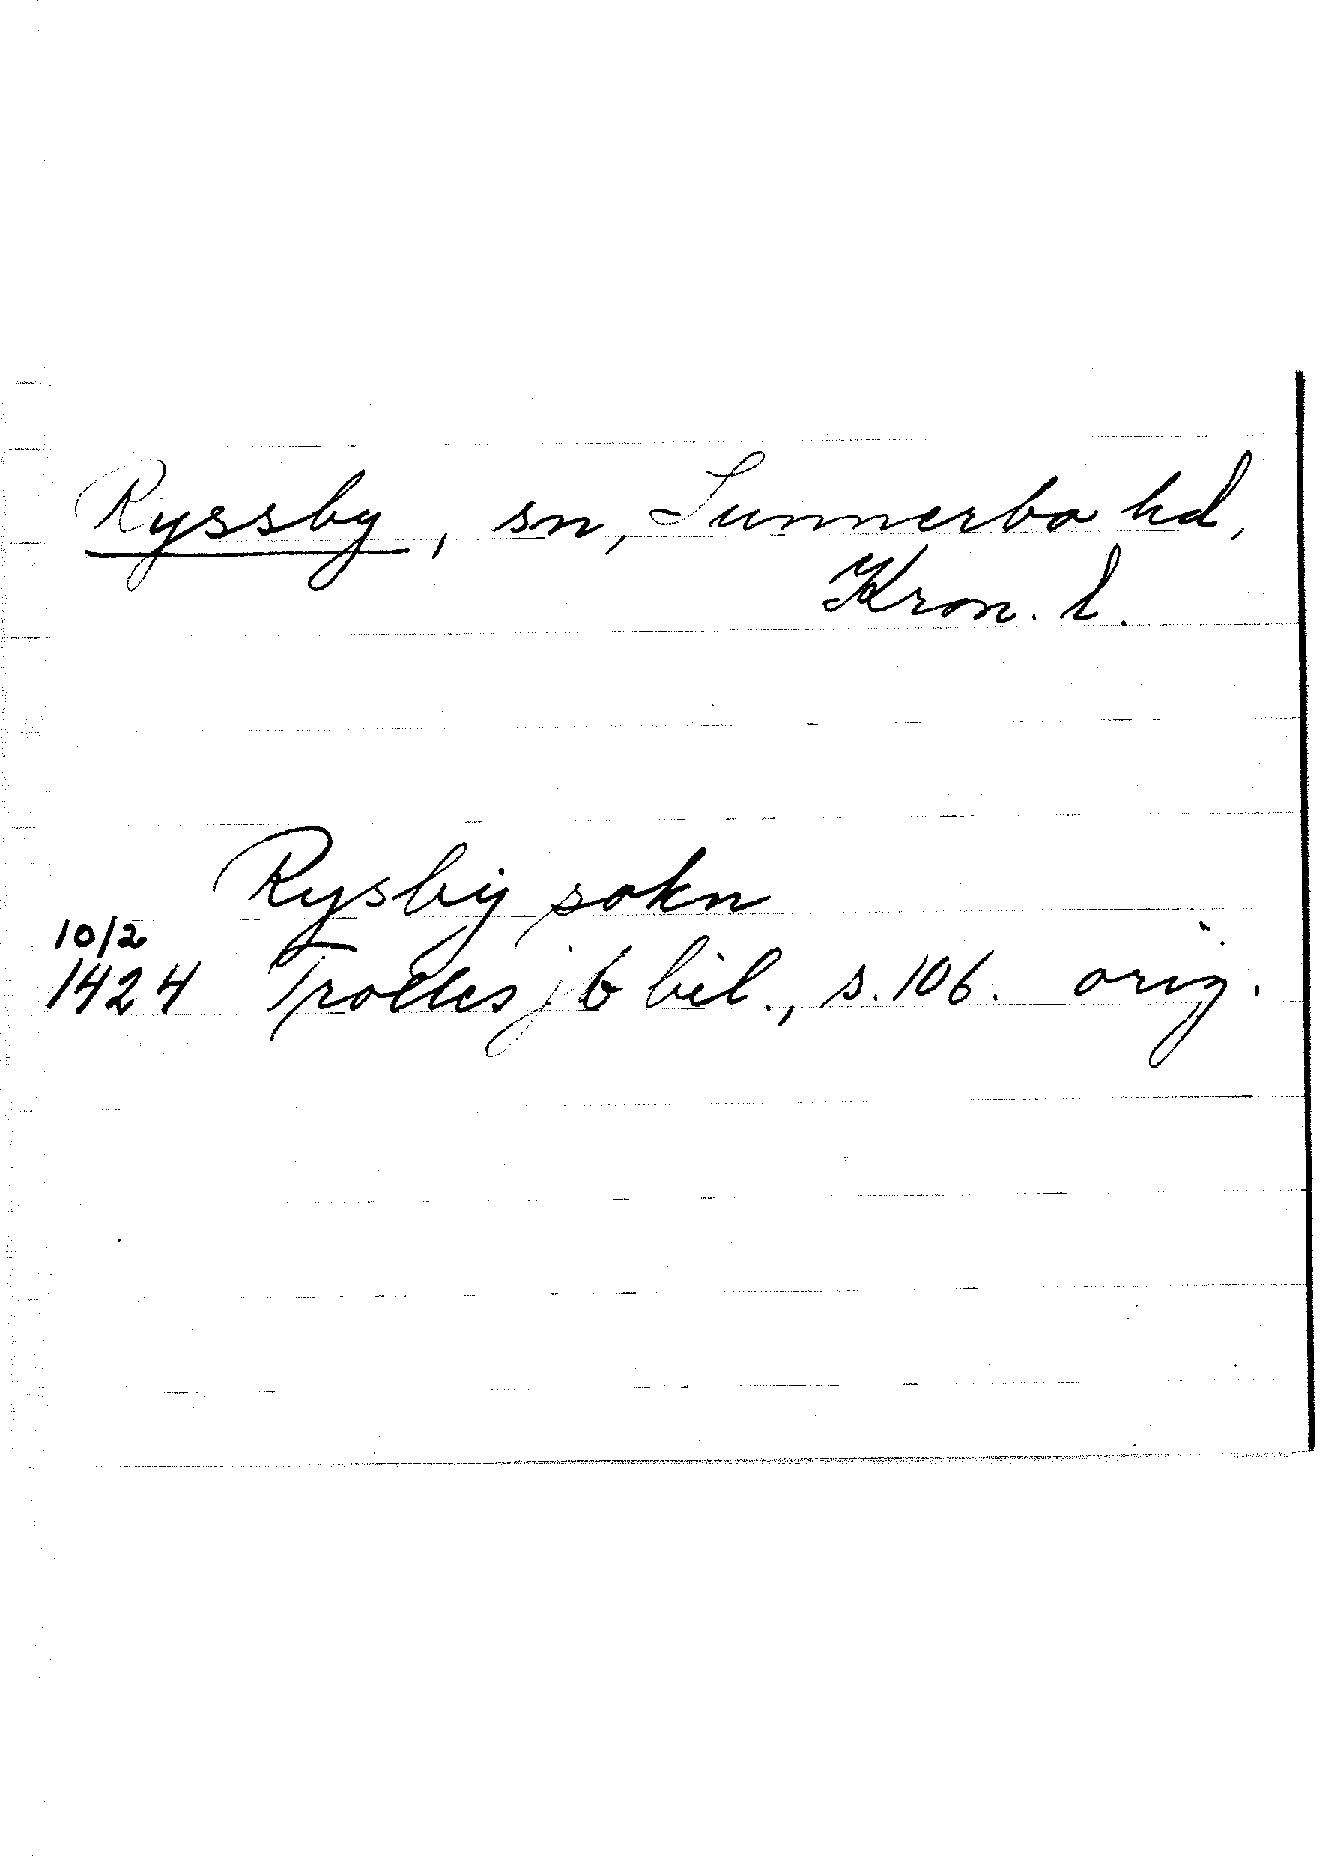 Ryssby, sn, Sunnerbo hd,
Kron. l.
Rysby sokn
10/2
1424 Trolles jb bil., s. 106. orig.